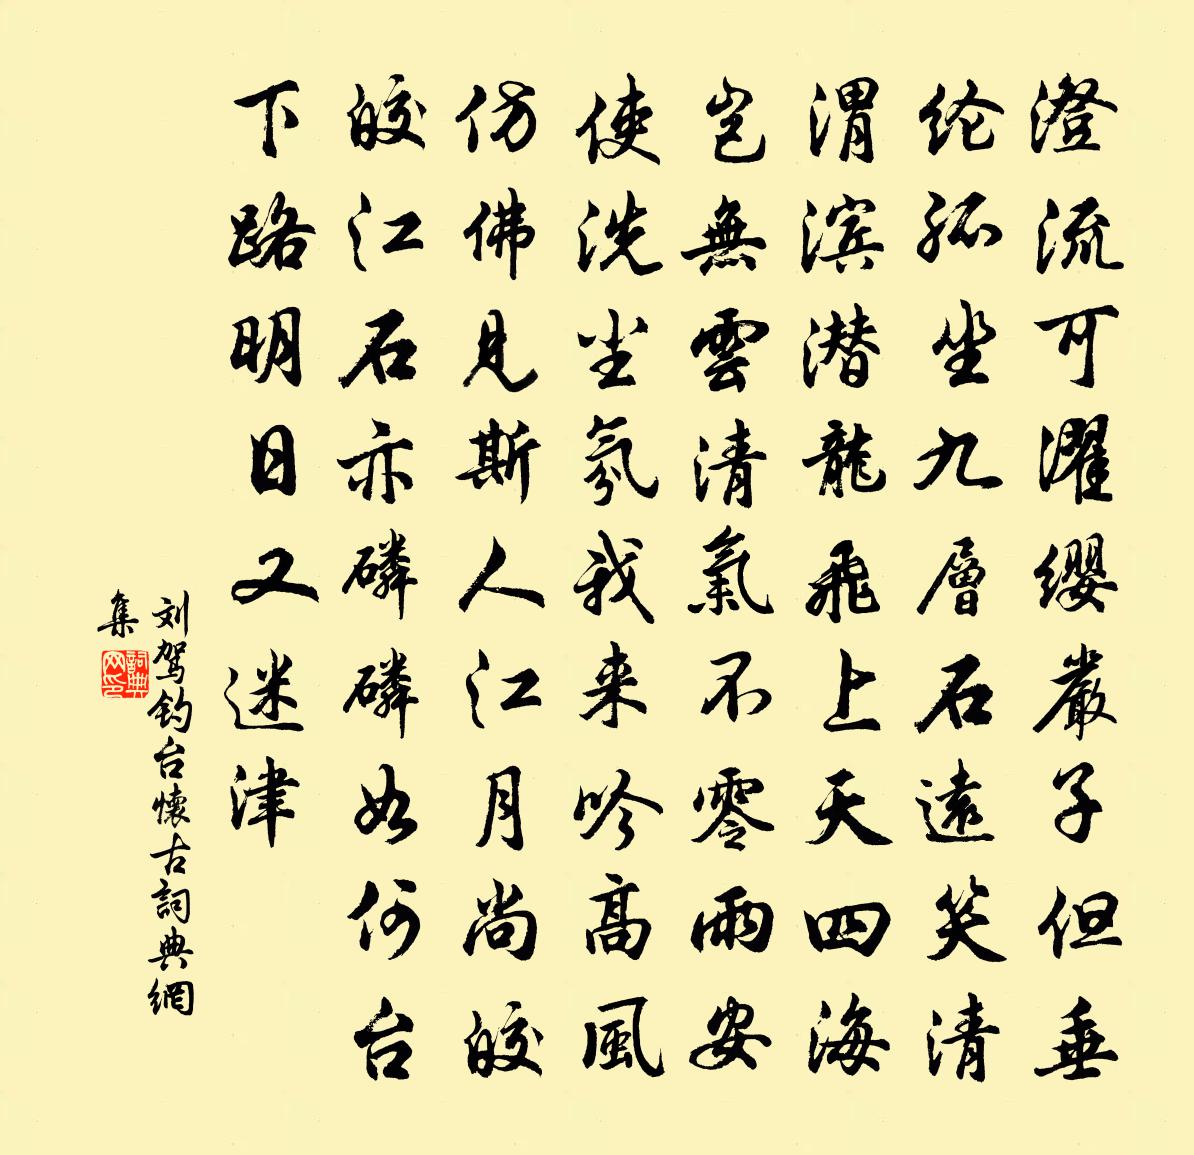 澄流可濯缨嚴子但垂
纶孤坐九層石遠笑清
渭滨潜龍飛上天四海
岂無雲清氣不零雨安
使洗尘氛我来吟高風
仿佛見斯人江月尚皎
皎江石亦磷磷如何台
下路明日又迷津
刘驾钓台懷古詞典網
集
詞典網印